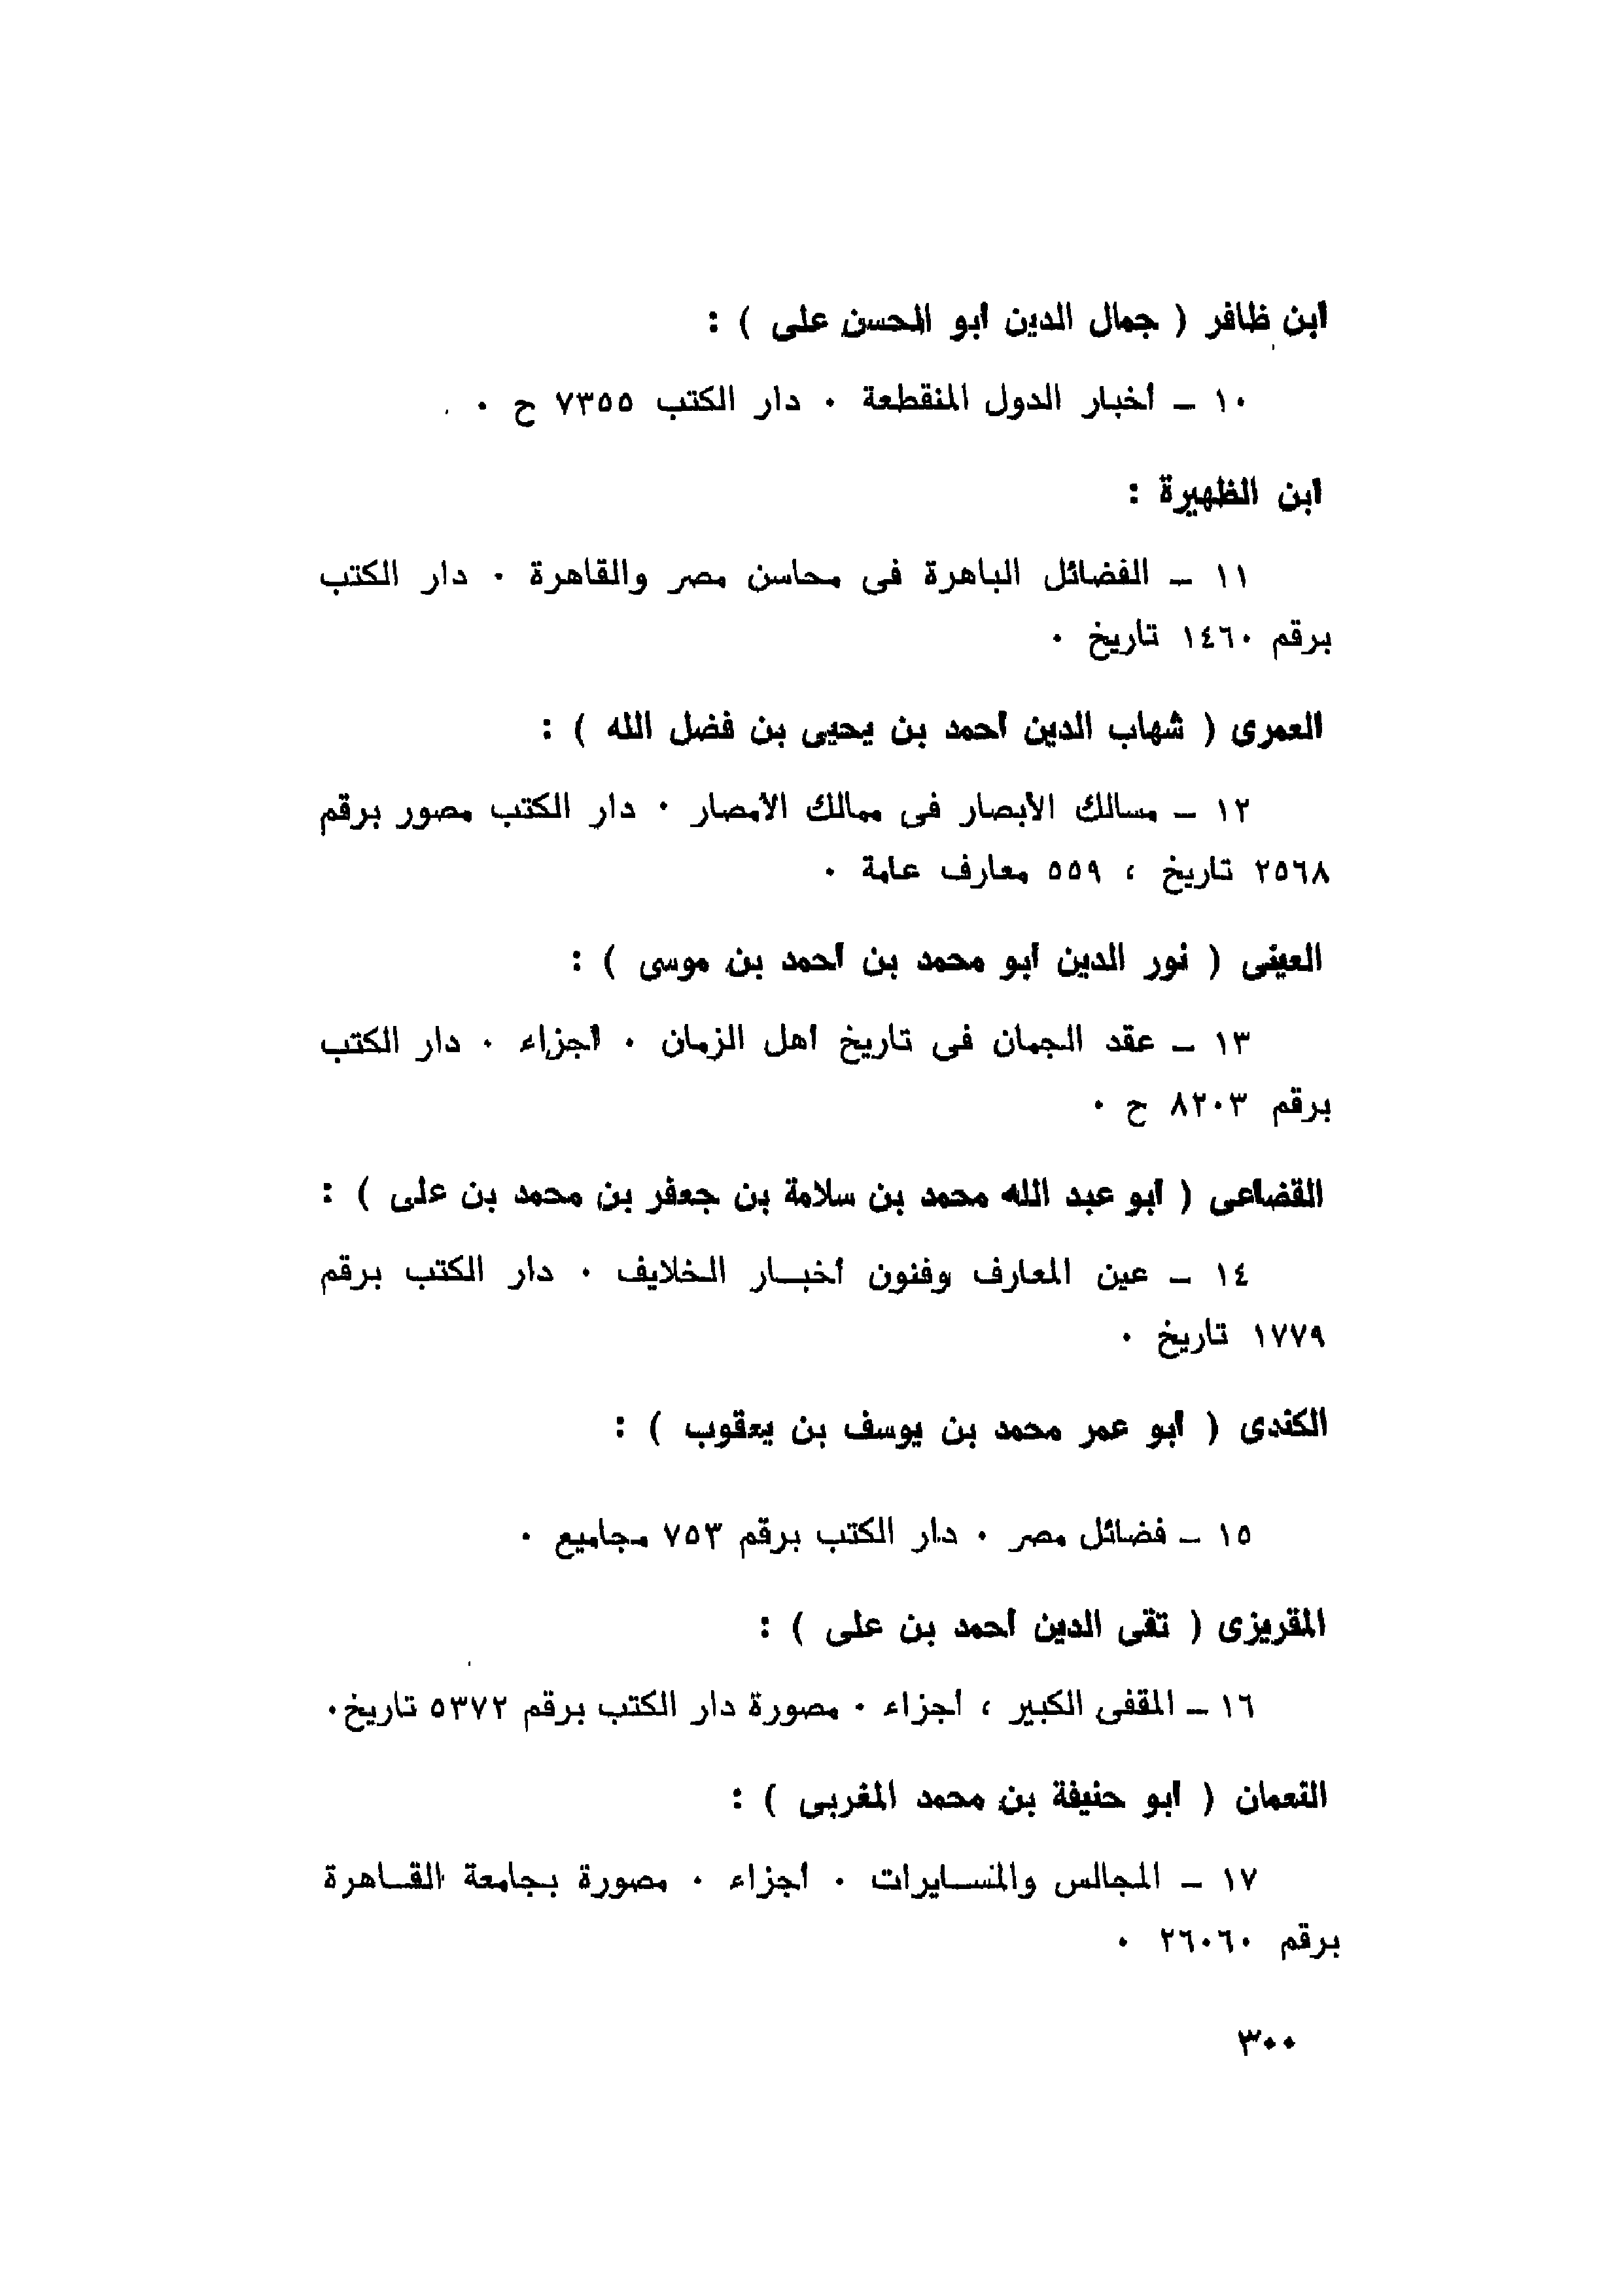 ابن ظافر ( جمال الدين أبو الحسن على ) :
١٠ ـ أخبار الدول المنقطعة ٠ دار الكتب ٧٣٥٥ ح ٠
ابن الظهيرة :
١١ ـ الفضائل الباهرة فى محاسن مصر والقاهرة ٠ دار الكتب
برقم ١٤٦٠ تاريخ ٠
العمرى ( شهاب الدين أحمد بن يحيى بن فضل الله ) :
١٢ ـ مسالك الأبصار فى ممالك الأمصار ٠ دار الكتب مصور برقم
٢٥٦٨ تاريخ ، ٥٥٩ معارف عامة ٠
العينى ( نور الدين أبو محمد بن أحمد بن موسى ) :
١٣ ـ عقد الجمان فى تاريخ أهل الزمان ٠ أجزاء ٠ دار الكتب
برقم ٨٢٠٣ ح ٠
القضاعى ( أبو عبد الله محمد بن سلامة بن جعفر بن محمد بن على ) :
١٤ ـ عين المعارف وفنون أخبـار الخلايف ٠ دار الكتب برقم
١٧٧٩ تاريخ ٠
الكندى ( أبو عمر محمد بن يوسف بن يعقوب ) :
١٥ ـ فضائل مصر ٠ دار الكتب برقم ٧٥٣ مجاميع ٠
المقريزى ( تقى الدين أحمد بن على ) :
١٦ ـ المقفى الكبير ، أجزاء ٠ مصورة دار الكتب برقم ٥٣٧٢ تاريخ٠
النعمان ( أبو حنيفة بن محمد المغربى ) :
١٧ ـ المجالس والمسـايرات ٠ أجزاء ٠ مصورة بجامعة القـاهرة
برقم ٢٦٠٦٠ ٠
٣٠٠